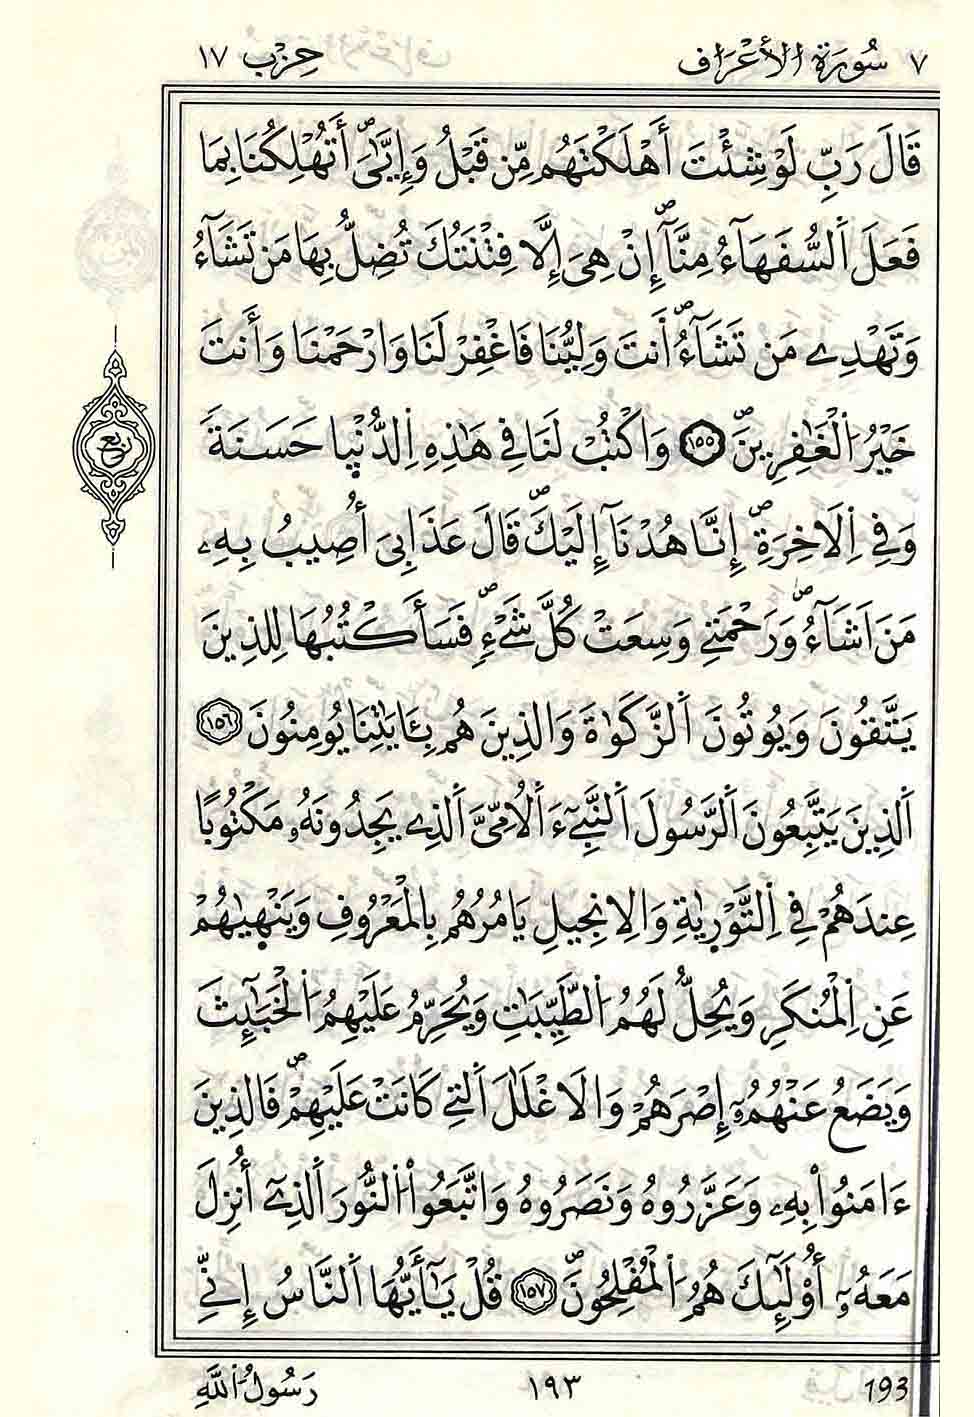 ٧ سُورَةُ الأَعْرَافِ حِزْب ١٧
قَالَ رَبِّ لَوْ شِئْتَ أَهْلَكْتَهُم مِّن قَبْلُ وَإِيَّٰىَۖ أَتُهْلِكُنَا بِمَا
فَعَلَ اَ۬لسُّفَهَآءُ مِنَّآۖ إِنْ هِىَ إِلَّا فِتْنَتُكَ تُضِلُّ بِهَا مَن تَشَآءُ
وَتَهْدِے مَن تَشَآءُۖ أَنتَ وَلِيُّنَا فَاغْفِرْ لَنَا وَارْحَمْنَا وَأَنتَ
خَيْرُ اُ۬لْغَٰفِرِينَۖ ١٥٥ وَاكْتُبْ لَنَا فِي هَٰذِهِ اِ۬لدُّنْيٜا حَسَنَةً
وَفِي اِ۬لَاخِرَةِۖ إِنَّا هُدْنَآ إِلَيْكَۖ قَالَ عَذَابِىَ أُصِيبُ بِهِۦ
مَنَ اَشَآءُۖ وَرَحْمَتِے وَسِعَتْ كُلَّ شَےْءٖۖ فَسَأَكْتُبُهَا لِلذِينَ
يَتَّقُونَ وَيُوتُونَ اَ۬لزَّكَوٰةَ وَالذِينَ هُم بِـَٔايَٰتِنَا يُومِنُونَ ١٥٦
اَ۬لذِينَ يَتَّبِعُونَ اَ۬لرَّسُولَ اَ۬لنَّبِےٓءَ اَ۬لُامِّىَّ اَ۬لذِے يَجِدُونَهُۥ مَكْتُوباً
عِندَهُمْ فِي اِ۬لتَّوْرٜيٰةِ وَالِانجِيلِ يَامُرُهُم بِالْمَعْرُوفِ وَيَنْهٜيٰهُمْ
عَنِ اِ۬لْمُنكَرِ وَيُحِلُّ لَهُمُ اُ۬لطَّيِّبَٰتِ وَيُحَرِّمُ عَلَيْهِمُ اُ۬لْخَبَٰٓئِثَ
وَيَضَعُ عَنْهُمُۥٓ إِصْرَهُمْ وَالَاغْلَٰلَ اَ۬لتِے كَانَتْ عَلَيْهِمْۖ فَالذِينَ
ءَامَنُواْ بِهِۦ وَعَزَّرُوهُ وَنَصَرُوهُ وَاتَّبَعُواْ اُ۬لنُّورَ اَ۬لذِےٓ أُنزِلَ
مَعَهُۥٓ أُوْلَٰٓئِكَ هُمُ اُ۬لْمُفْلِحُونَۖ ١٥٧ قُلْ يَٰٓأَيُّهَا اَ۬لنَّاسُ إِنِّے
ربع
رَسُولُ اُ۬للَّهِ ١٩٣ 193